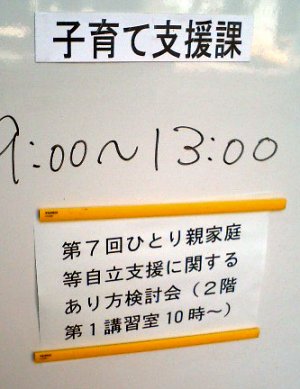 子育て支援課
9:00~13:00
第7回ひとり親家庭
等自立支援に関する
あり方検討会(2階
第1講習室10時~)